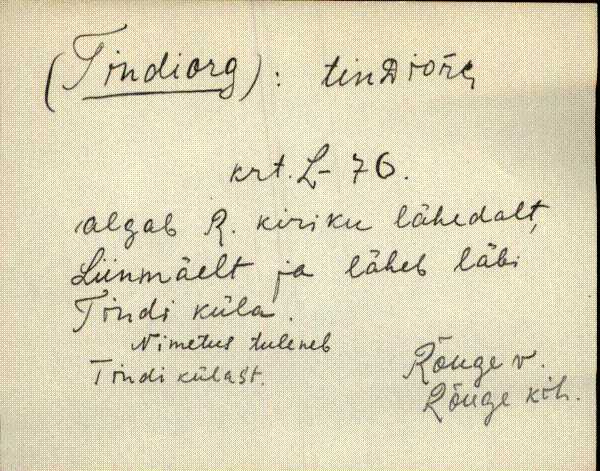 (Tindiorg): tinDiorG
krt. L-76.
algab R. kiriku lähedalt,
Liinmäelt ja läheb läbi
Tindi küla.
Nimetus tuleneb
Tindi külast.
Rõuge v.
Rõuge kih.